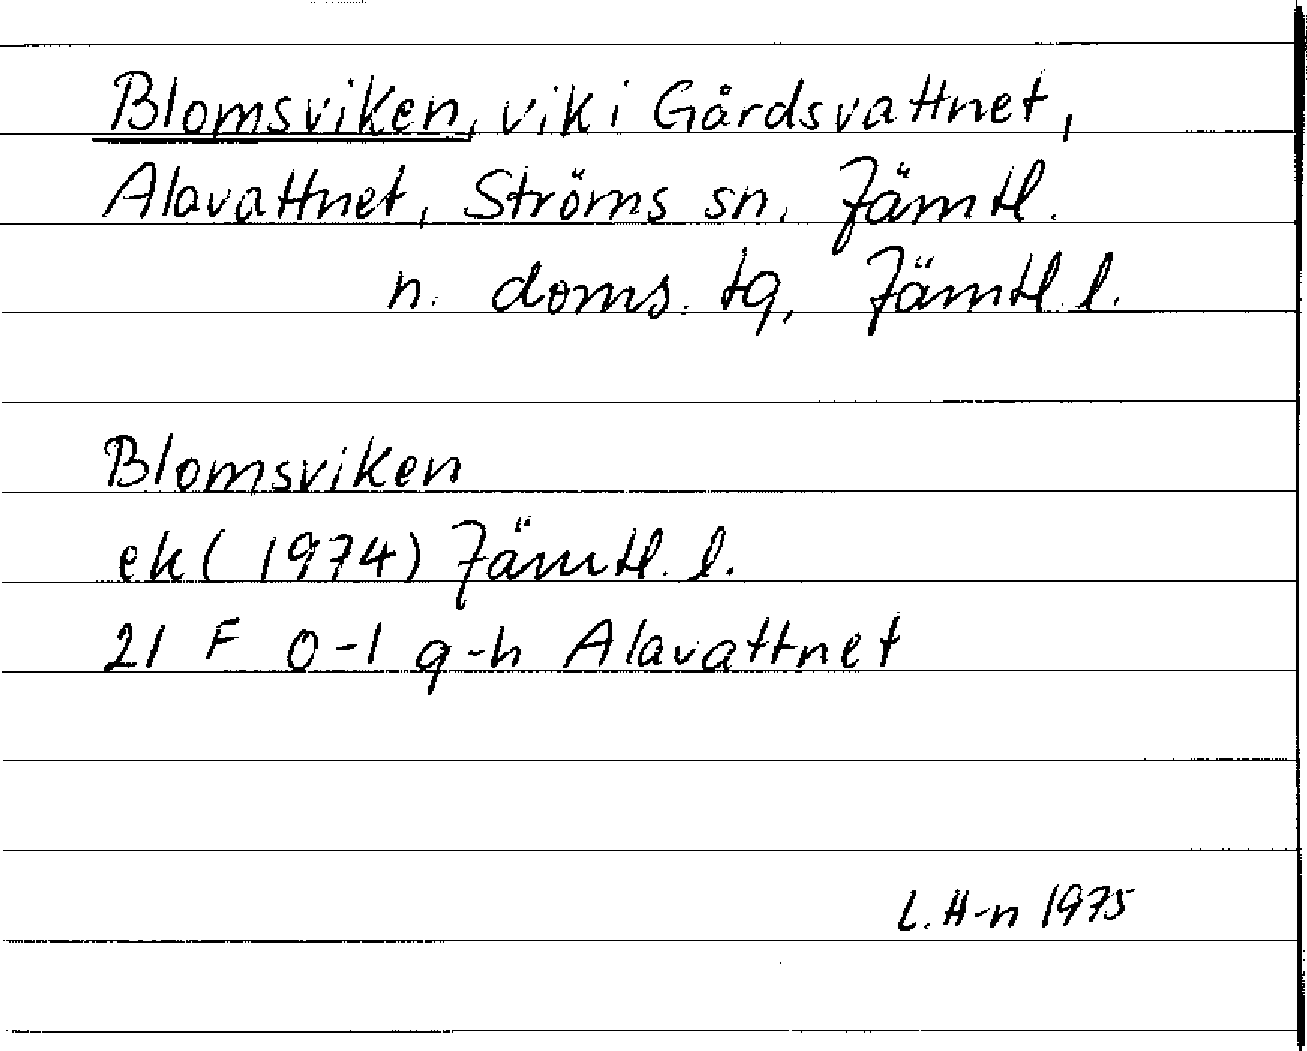 Blomsviken, vik i Gårdsvattnet,
Alavattnet, Ströms sn, Jämtl.
n. doms. tg, Jämtl. l.
Blomsviken
ek (1974) Jämtl. l.
21 F 0-1 g-h Alavattnet
L. H-n 1975